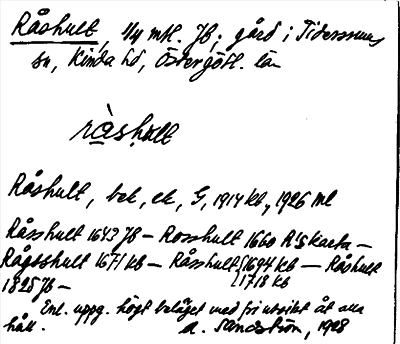 Råshult, 1/4 mtl. Jb, gård i Tidersrums
sn, Kinda hd, Östergötl. län
råshult
Råshult, bek, ek, G, 1914 kb, 1926 ml
Råsshult 1643 Jb – Rosshult 1660 R:s karta –
Rågsshult 1671 kb – Råsshult {1694 kb – Råshult
{1718 kb
1825 Jb –
Enl. uppg. högt beläget med fri utsikt åt alla
håll. A. Sandström, 1928